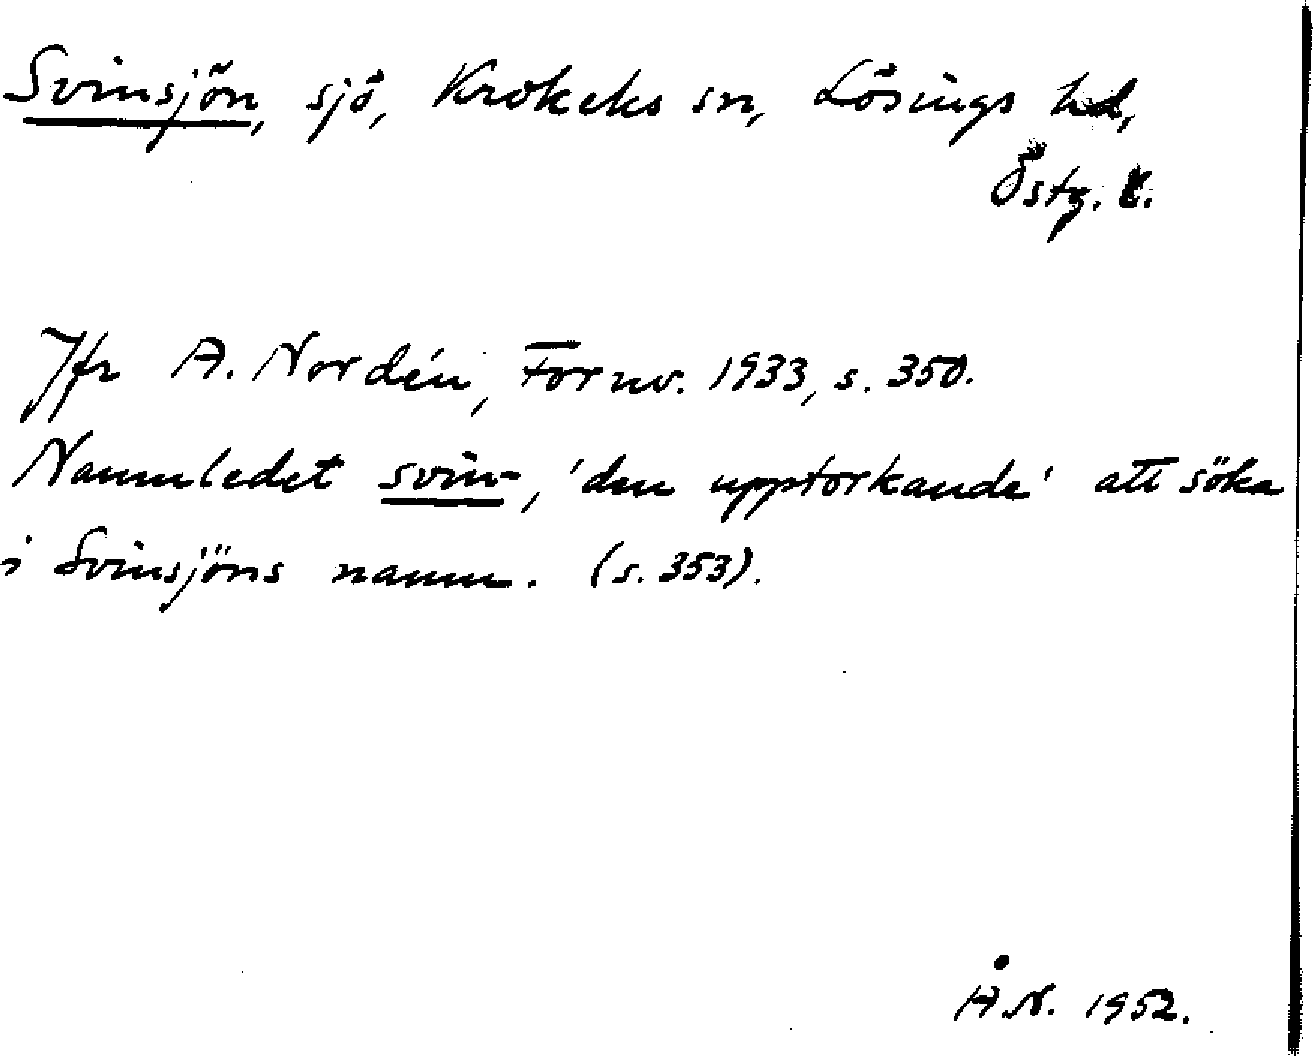 Svinsjön, sjö, Krokeks sn, Lösings hd,
Östg. l.
Jfr A. Nordén, Fornv. 1933, s. 350.
Namnledet svin-, 'den upptorkande' att söka
i Svinsjöns namn. (s. 353).
Å.N. 1952.